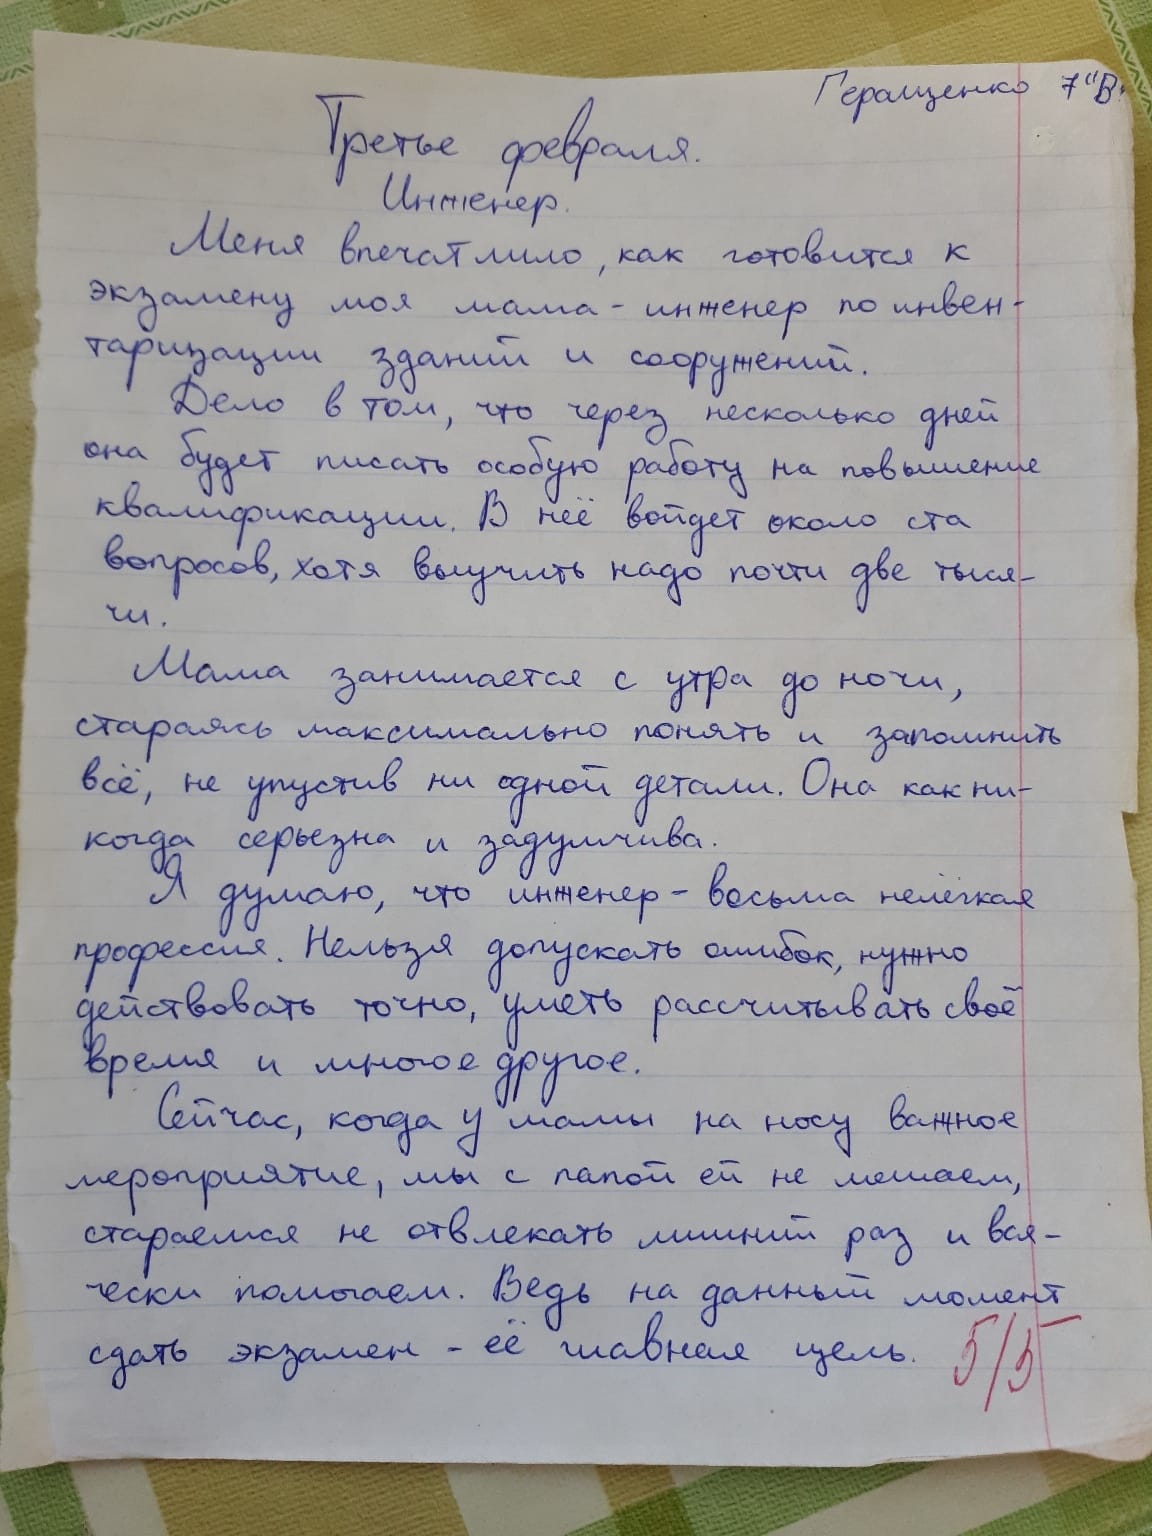 Геращенко 7"В"
Третье февраля.
Инженер.
Меня впечатлило, как готовится к
экзамену моя мама - инженер по инвен-
таризации зданий и сооружений.
Дело в том, что через несколько дней
она будет писать особую работу на повышение
квалификации. В неё войдет около ста
вопросов, хотя выучить надо почти две тыся-
чи.
Мама занимается с утра до ночи,
стараясь максимально понять и запомнить
всё, не упустив ни одной детали. Она как ни-
когда серьезна и задумчива.
Я думаю, что инженер - весьма нелёгкая
профессия. Нельзя допускать ошибок, нужно
действовать точно, уметь рассчитывать своё
время и многое другое.
Сейчас, когда у мамы на носу важное
мероприятие, мы с папой ей не мешаем,
стараемся не отвлекать лишний раз и вся-
чески помогаем. Ведь на данный момент
сдать экзамен - её главная цель.
5/5